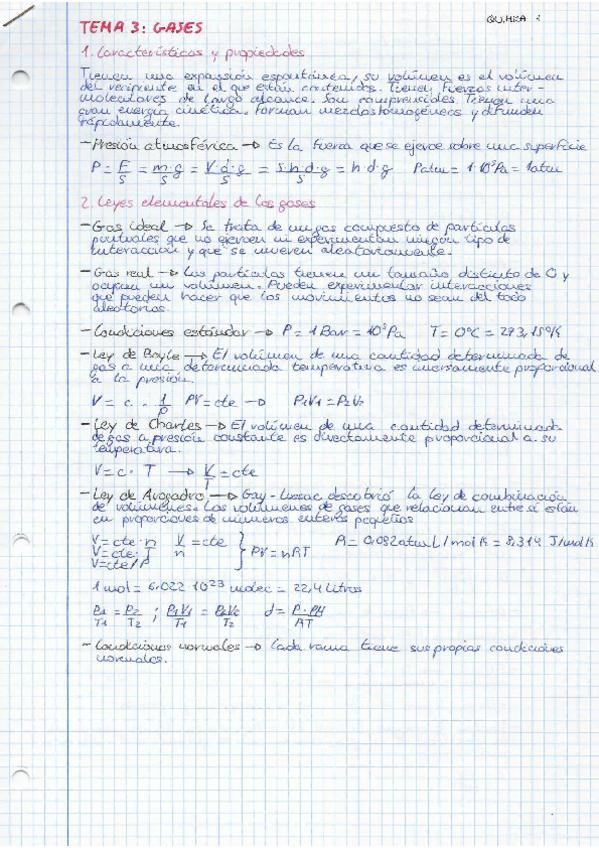 QUIMICA
TEMA 3: GASES
1. Características y propiedades
Tienen una expansión espontánea, su volúmen es el volúmen
del recipiente en el que están contenidos. Tienen fuerzas inter-
moleculares de largo alcance. Son comprensibles. Tienen una
gran energía cinética. Forman mezclas homogéneas y difunden
rápidamente.
- Presión atmosférica → Es la fuerza que se ejerce sobre una superficie
P = F/S = m·g/S = V·d·g/S = s·h·d·g/S = h·d·g Patm = 1·10⁵Pa = 1atm
2. Leyes elementales de los gases
- Gas ideal → Se trata de un gas compuesto de partículas
puntuales que no ejercen ni experimentan ningún tipo de
interacción y que se mueven aleatoriamente.
- Gas real → Las partículas tienen un tamaño distinto de 0 y
ocupan un volumen. Pueden experimentar interacciones
que pueden hacer que los movimientos no sean del todo
aleatorios.
- Condiciones estándar → P = 1 Bar = 10⁵Pa T = 0ºC = 273,15ºK
- Ley de Boyle → El volúmen de una cantidad determinada de
gas a una determinada temperatura es inversamente proporcional
a la presión.
V = c · 1/P PV = cte → P₁V₁ = P₂V₂
- Ley de Charles → El volúmen de una cantidad determinada
de gas a presión constante es directamente proporcional a su
temperatura.
V = c · T → V/T = cte
- Ley de Avogadro → Gay-Lussac descubrió la ley de combinación
de volúmenes. Los volúmenes de gases que relacionan entre sí están
en proporciones de números enteros pequeños
V = cte·n V/n = cte } PV = nRT R = 0,082 atm L/mol K = 8,314 J/mol K
V = cte·T
V = cte/P
1 mol = 6,022 10²³ molec = 22,4 litros
P₁/T₁ = P₂/T₂ ; P₁V₁/T₁ = P₂V₂/T₂ d = P·PM/RT
- Condiciones normales → Cada rama tiene sus propias condiciones
normales.